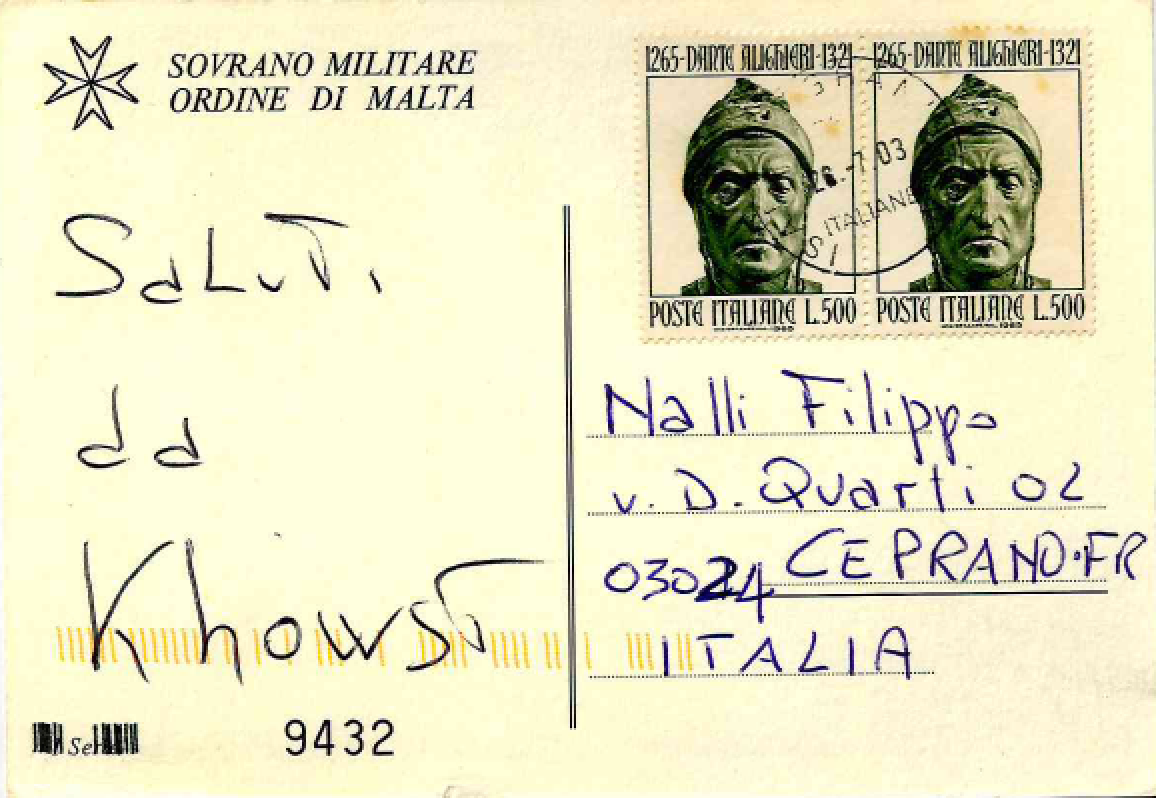 SOVRANO MILITARE
ORDINE DI MALTA
1265-DANTE ALIGHIERI-1321
1265-DANTE ALIGHIERI-1321
26.-7.03
ITALIANE
POSTE ITALIANE L.500
POSTE ITALIANE L.500
SaLuTi
da
Khowst
Nalli Filippo
v. D. Quarti 02
03024 CEPRANO·FR
ITALIA
9432